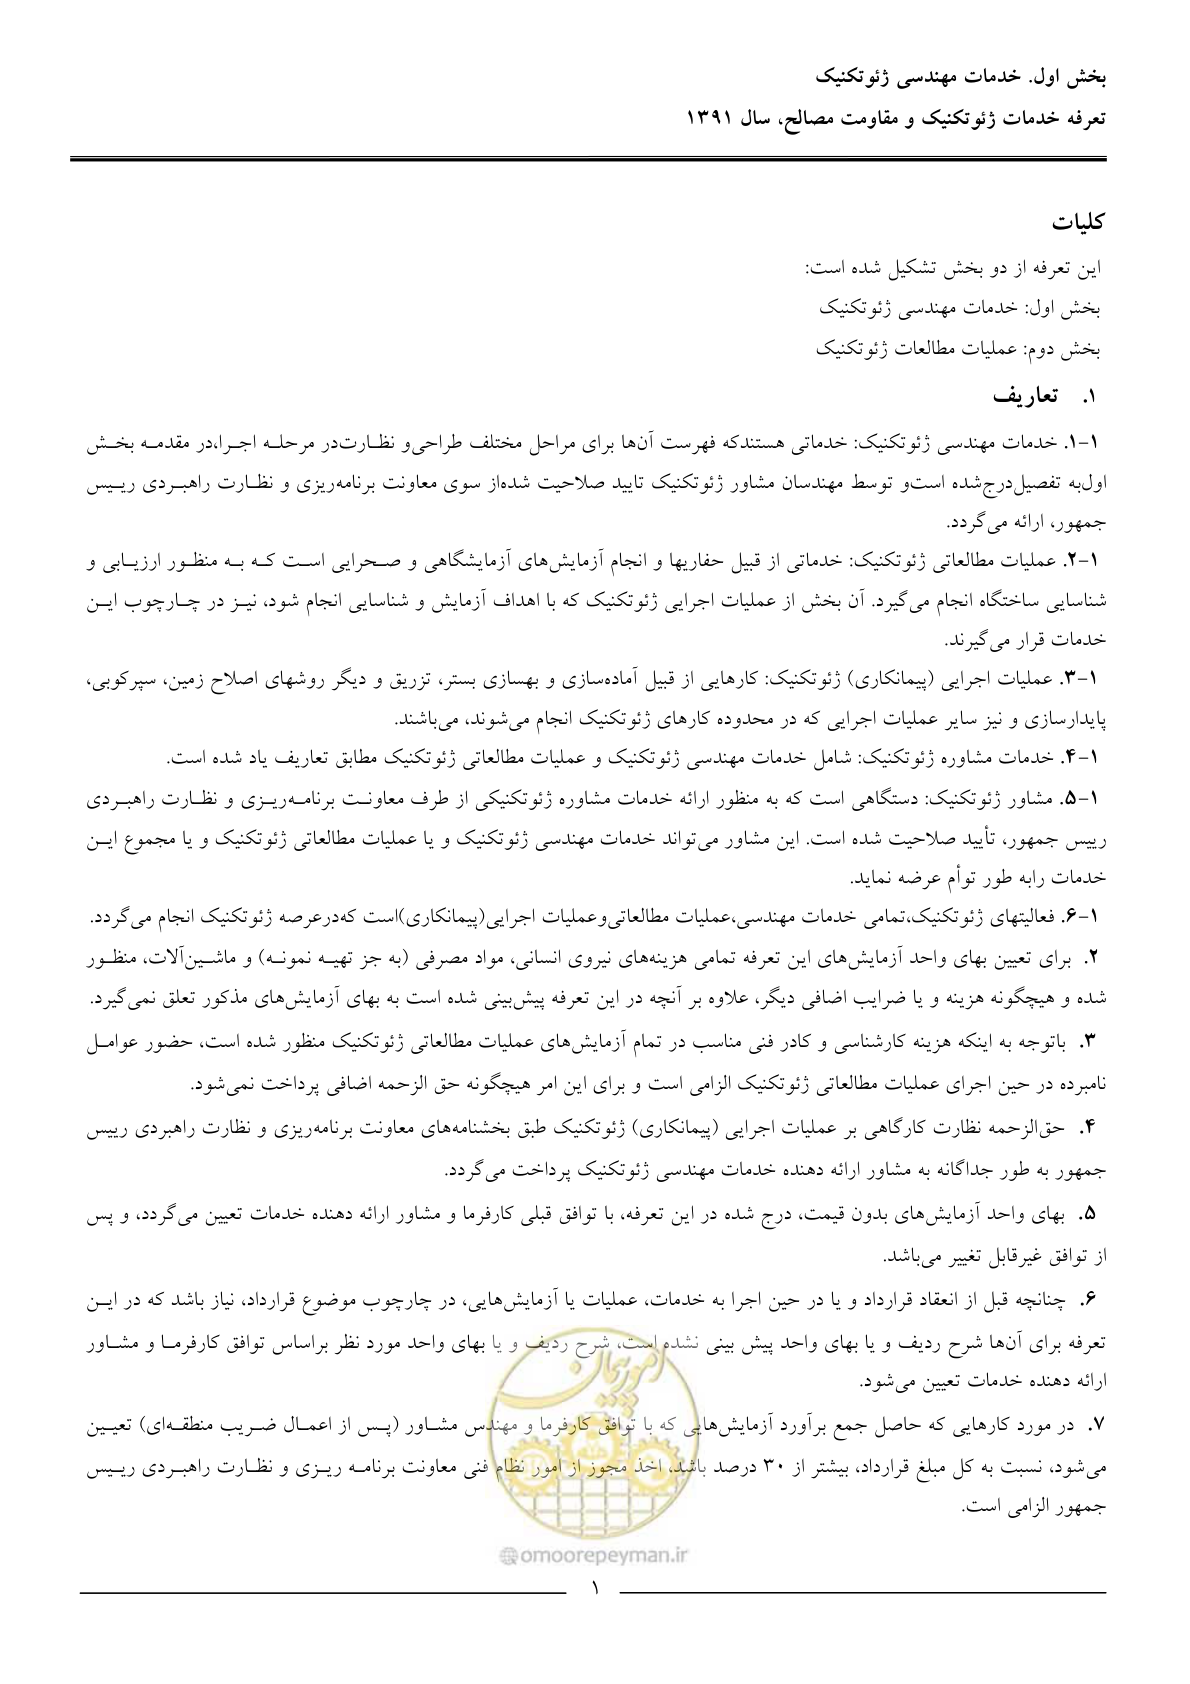 بخش اول. خدمات مهندسی ژئوتکنیک
تعرفه خدمات ژئوتکنیک و مقاومت مصالح، سال ۱۳۹۱
کلیات
این تعرفه از دو بخش تشکیل شده است:
بخش اول: خدمات مهندسی ژئوتکنیک
بخش دوم: عملیات مطالعات ژئوتکنیک
۱. تعاریف
۱-۱. خدمات مهندسی ژئوتکنیک: خدماتی هستندکه فهرست آن‌ها برای مراحل مختلف طراحی‌و نظـارت‌در مرحلـه اجـرا،در مقدمـه بخـش
اول‌به تفصیل‌درج‌شده است‌و توسط مهندسان مشاور ژئوتکنیک تایید صلاحیت شده‌از سوی معاونت برنامه‌ریزی و نظـارت راهبـردی ریـیس
جمهور، ارائه می‌گردد.
۱-۲. عملیات مطالعاتی ژئوتکنیک: خدماتی از قبیل حفاریها و انجام آزمایش‌های آزمایشگاهی و صـحرایی اسـت کـه بـه منظـور ارزیـابی و
شناسایی ساختگاه انجام می‌گیرد. آن بخش از عملیات اجرایی ژئوتکنیک که با اهداف آزمایش و شناسایی انجام شود، نیـز در چـارچوب ایـن
خدمات قرار می‌گیرند.
۱-۳. عملیات اجرایی (پیمانکاری) ژئوتکنیک: کارهایی از قبیل آماده‌سازی و بهسازی بستر، تزریق و دیگر روشهای اصلاح زمین، سپرکوبی،
پایدارسازی و نیز سایر عملیات اجرایی که در محدوده کارهای ژئوتکنیک انجام می‌شوند، می‌باشند.
۱-۴. خدمات مشاوره ژئوتکنیک: شامل خدمات مهندسی ژئوتکنیک و عملیات مطالعاتی ژئوتکنیک مطابق تعاریف یاد شده است.
۱-۵. مشاور ژئوتکنیک: دستگاهی است که به منظور ارائه خدمات مشاوره ژئوتکنیکی از طرف معاونـت برنامـه‌ریـزی و نظـارت راهبـردی
رییس جمهور، تأیید صلاحیت شده است. این مشاور می‌تواند خدمات مهندسی ژئوتکنیک و یا عملیات مطالعاتی ژئوتکنیک و یا مجموع ایـن
خدمات رابه طور توأم عرضه نماید.
۱-۶. فعالیتهای ژئوتکنیک،تمامی خدمات مهندسی،عملیات مطالعاتی‌وعملیات اجرایی(پیمانکاری)است که‌درعرصه ژئوتکنیک انجام می‌گردد.
۲. برای تعیین بهای واحد آزمایش‌های این تعرفه تمامی هزینه‌های نیروی انسانی، مواد مصرفی (به جز تهیـه نمونـه) و ماشـین‌آلات، منظـور
شده و هیچگونه هزینه و یا ضرایب اضافی دیگر، علاوه بر آنچه در این تعرفه پیش‌بینی شده است به بهای آزمایش‌های مذکور تعلق نمی‌گیرد.
۳. باتوجه به اینکه هزینه کارشناسی و کادر فنی مناسب در تمام آزمایش‌های عملیات مطالعاتی ژئوتکنیک منظور شده است، حضور عوامـل
نامبرده در حین اجرای عملیات مطالعاتی ژئوتکنیک الزامی است و برای این امر هیچگونه حق الزحمه اضافی پرداخت نمی‌شود.
۴. حق‌الزحمه نظارت کارگاهی بر عملیات اجرایی (پیمانکاری) ژئوتکنیک طبق بخشنامه‌های معاونت برنامه‌ریزی و نظارت راهبردی رییس
جمهور به طور جداگانه به مشاور ارائه دهنده خدمات مهندسی ژئوتکنیک پرداخت می‌گردد.
۵. بهای واحد آزمایش‌های بدون قیمت، درج شده در این تعرفه، با توافق قبلی کارفرما و مشاور ارائه دهنده خدمات تعیین می‌گردد، و پس
از توافق غیرقابل تغییر می‌باشد.
۶. چنانچه قبل از انعقاد قرارداد و یا در حین اجرا به خدمات، عملیات یا آزمایش‌هایی، در چارچوب موضوع قرارداد، نیاز باشد که در ایـن
تعرفه برای آن‌ها شرح ردیف و یا بهای واحد پیش بینی نشده است، شرح ردیف و یا بهای واحد مورد نظر براساس توافق کارفرمـا و مشـاور
ارائه دهنده خدمات تعیین می‌شود.
۷. در مورد کارهایی که حاصل جمع برآورد آزمایش‌هایی که با توافق کارفرما و مهندس مشـاور (پـس از اعمـال ضـریب منطقـه‌ای) تعیـین
می‌شود، نسبت به کل مبلغ قرارداد، بیشتر از ۳۰ درصد باشد، اخذ مجوز از امور نظام فنی معاونت برنامـه ریـزی و نظـارت راهبـردی ریـیس
جمهور الزامی است.
امورپیمان
omoorepeyman.ir
۱